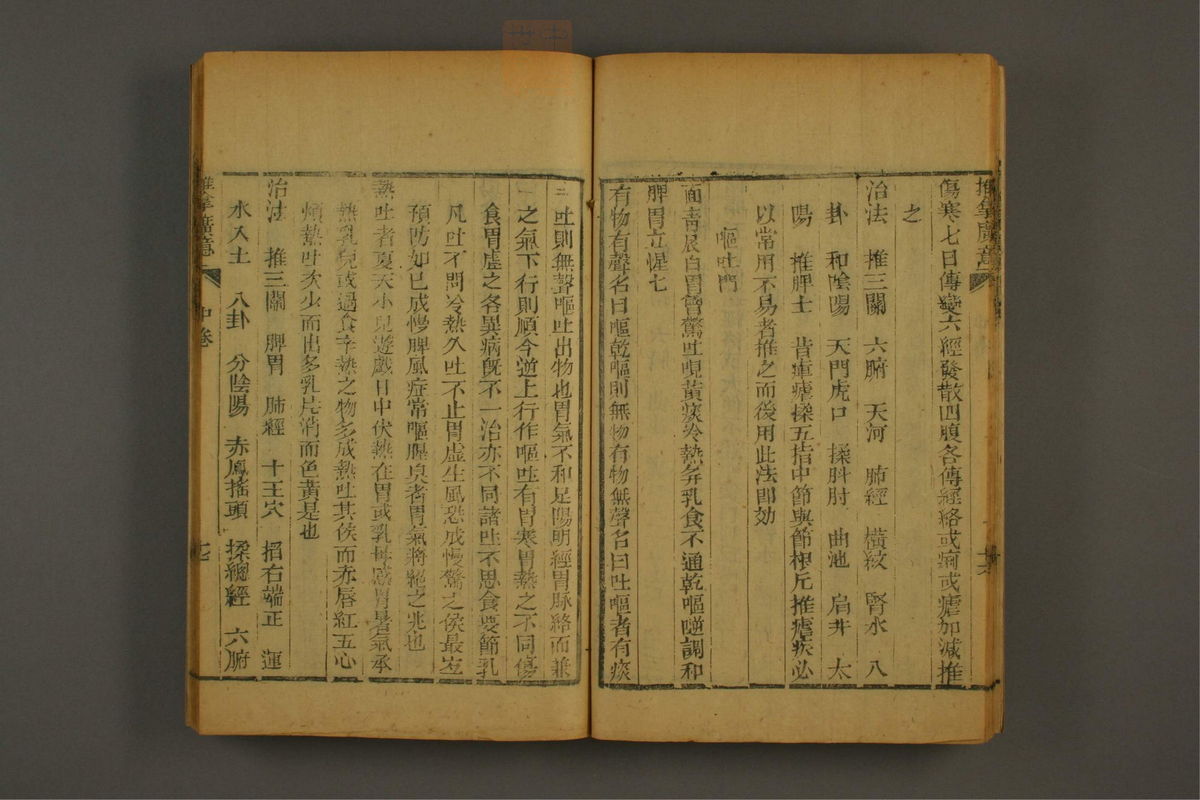 推拿廣意
十六
傷寒七日傳變六經發散四腹各傳經絡或痢或瘧加減推
之
治法 推三關 六腑 天河 肺經 橫紋 腎水 八
卦 和陰陽 天門虎口 揉㪷肘 曲池 肩井 太
陽 推脾土 昔瘧瘧揉五指中節與節根凡推瘧疾必
以常用不易者推之而後用此法即効
嘔吐門
面青唇白胃曾驚吐哯黃痰冷熱弁乳食不通乾嘔逆調和
脾胃立惺七
有物有聲名曰嘔乾嘔則無物有物無聲名曰吐嘔者有痰
吐則無聲嘔吐出物也胃氣不和足陽明經胃脉絡而兼
之氣下行則順今逆上行作嘔吐有胃寒胃熱之不同傷
食胃虛之各異病旣不一治亦不同諸吐不思食要節乳
凡吐不問冷熱久吐不止胃虛生風恐成慢驚之侯最宜
預防如已成慢脾風症常嘔腥臭者胃氣將絕之兆也
熱吐者夏天小兒遊戲日中伏熱在胃或乳母感冒暑氣承
熱乳兒或過食辛熱之物多成熱吐其侯面赤唇紅五心
煩熱吐次少而出多乳片消而色黃是也
治法 推三關 脾胃 肺經 十王穴 掐右端正 運
水入土 八卦 分陰陽 赤鳳搖頭 揉總經 六腑
推拿廣意
中卷
十七